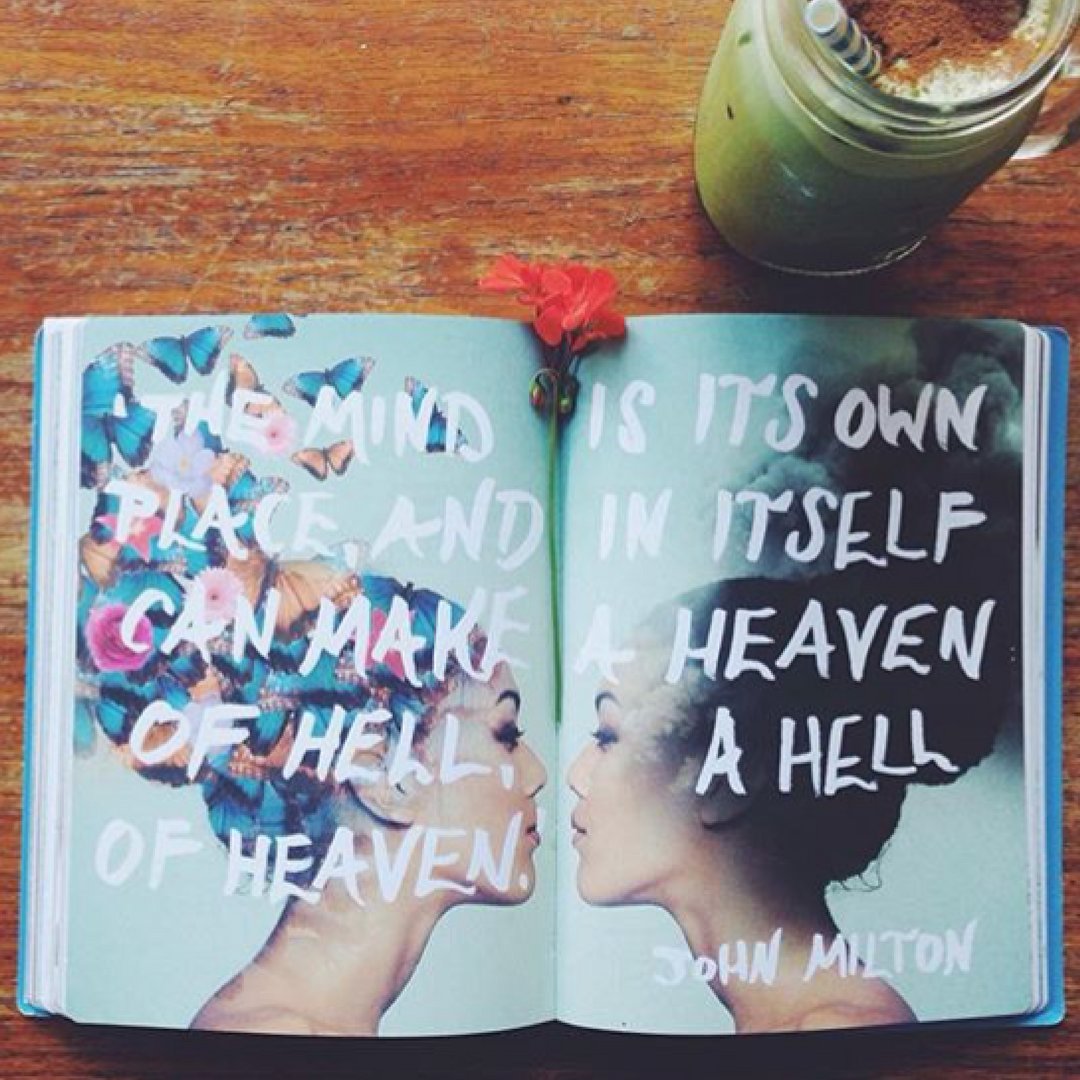 'THE MIND IS ITS OWN
PLACE, AND IN ITSELF
CAN MAKE A HEAVEN
OF HELL, A HELL
OF HEAVEN.'
JOHN MILTON